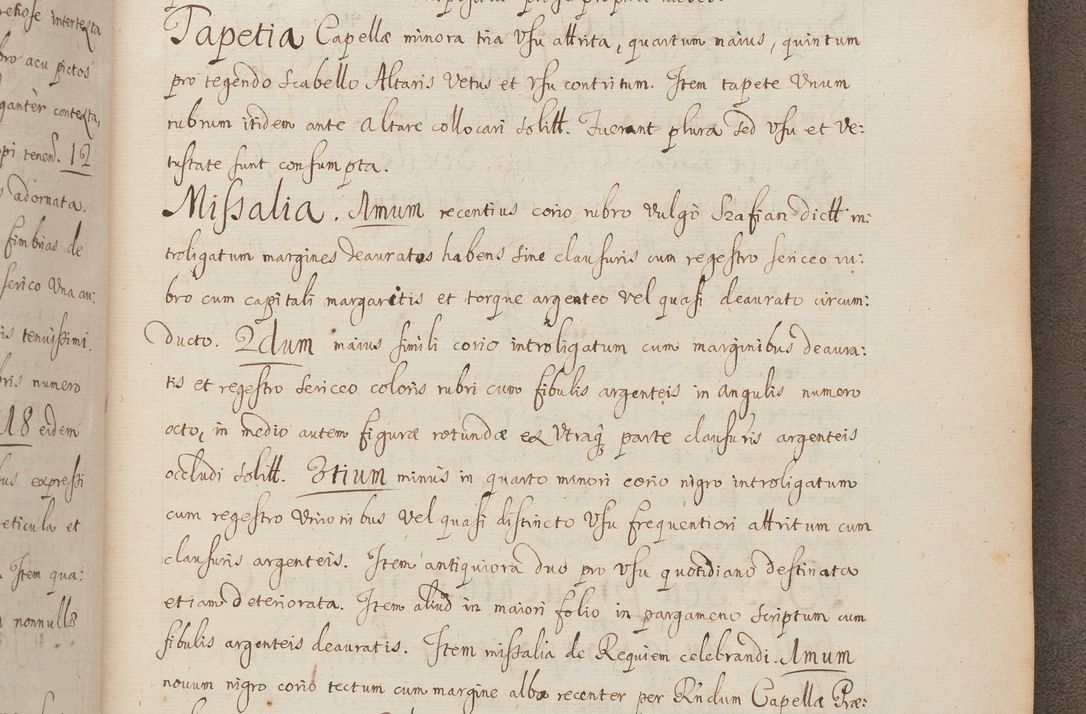 Tapetia Capellæ minora tria Vsu attrita, quartum maius, quintum
pro tegendo scabello Altaris Vetus et Vsu contritum. Item tapete Vnum
rubrum itidem ante altare collocari solitt. Fuerant plura sed Vsu et Ve:
tustate sunt consumpta.
Missalia. Amum recentius corio rubro Vulgò Szafian dictt in:
troligatum margines deauratos habens sine clausuris cum regestro sericeo ru:
bro cum capitali margaritis et torque argenteo vel quasi deaurato circum:
ducto. 2dum maius simili corio introligatum cum marginibus deaura:
tis et regestro sericeo coloris rubri cum fibulis argenteis in angulis numero
octo, in medio autem figuræ rotundæ ex Vtraq parte clausuris argenteis
occludi solitt. 3tium minus in quarto minori corio nigro introligatum
cum regestro Vnionibus vel quasi distincto Vsu frequentiori attritum cum
clausuris argenteis. Item antiquiora duo pro Vsu quotidiano destinata
etiam deteriorata. Item aliud in maiori folio in pargameno scriptum cum
fibulis argenteis deauratis. Item missalia de Requiem celebrandi. Amum
nouum nigro corio tectum cum margine albo recenter per Rndum Capellæ Præ:
intertexta
bro acu pictos
contexta,
pi tenen. 12
adornata.
fimbrias de
serico Vna au:
is tenuissimi.
bris numero
18 eidem
expressi
reticula et
Item qua:
nonnulls